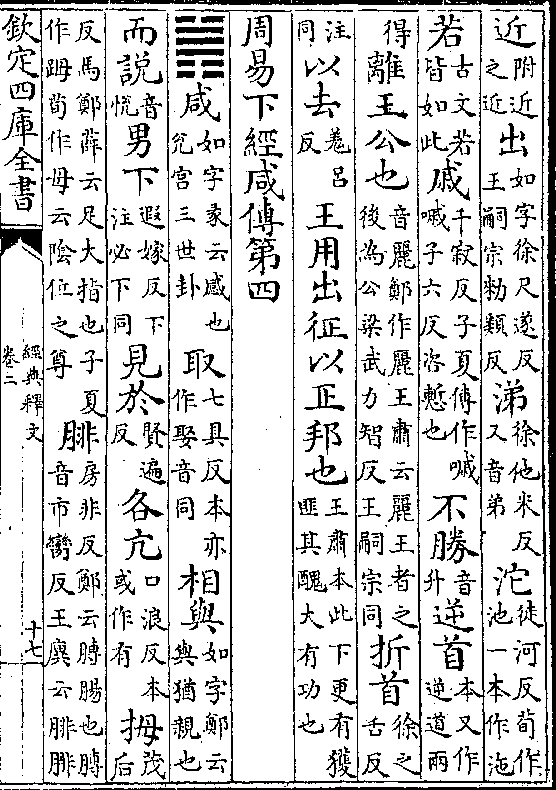 近附近之近出如字徐尺遂反王嗣宗勑類反涕徐他米反又音弟沱徒河反荀作池一本作沲
若古文若皆如此戚千寂反子夏傳作嘁嘁子六反咨慙也不勝音升逆首本又作逆道兩
得離王公也音麗鄭作麗王肅云麗王者之後為公梁武力智反王嗣宗同折首徐之舌反
注同以去羗呂反王用出征以正邦也王肅本此下更有獲匪其醜大有功也
周易下經咸傳第四
䷞咸如字彖云感也兌宮三世卦取七具反本亦作娶音同相與如字鄭云與猶親也
而說音恱男下遐嫁反下注必下同見於賢遍反各亢口浪反本或作有拇茂后
反馬鄭薛云足大指也子夏作𨂜荀作母云陰位之尊腓房非反鄭云膊腸也膊音市臠反王廙云腓腓
欽定四庫全書
經典釋文
卷二
十七